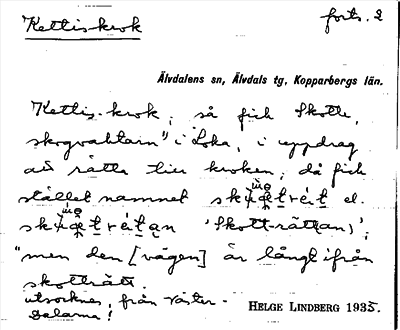 Kettis-krok
forts. 2
Älvdalens sn, Älvdals tg, Kopparbergs län.
Kettis-krok, så fick Skotte,
skogvaktarn" i Loka, i uppdrag
att rätta till kroken, då fick
stället namnet el.
'Skott-rättan)';
"men den [vägen] är långt ifrån
skotträtt.
utsocknes, från Väster-
Dalarna!
HELGE LINDBERG 1935.